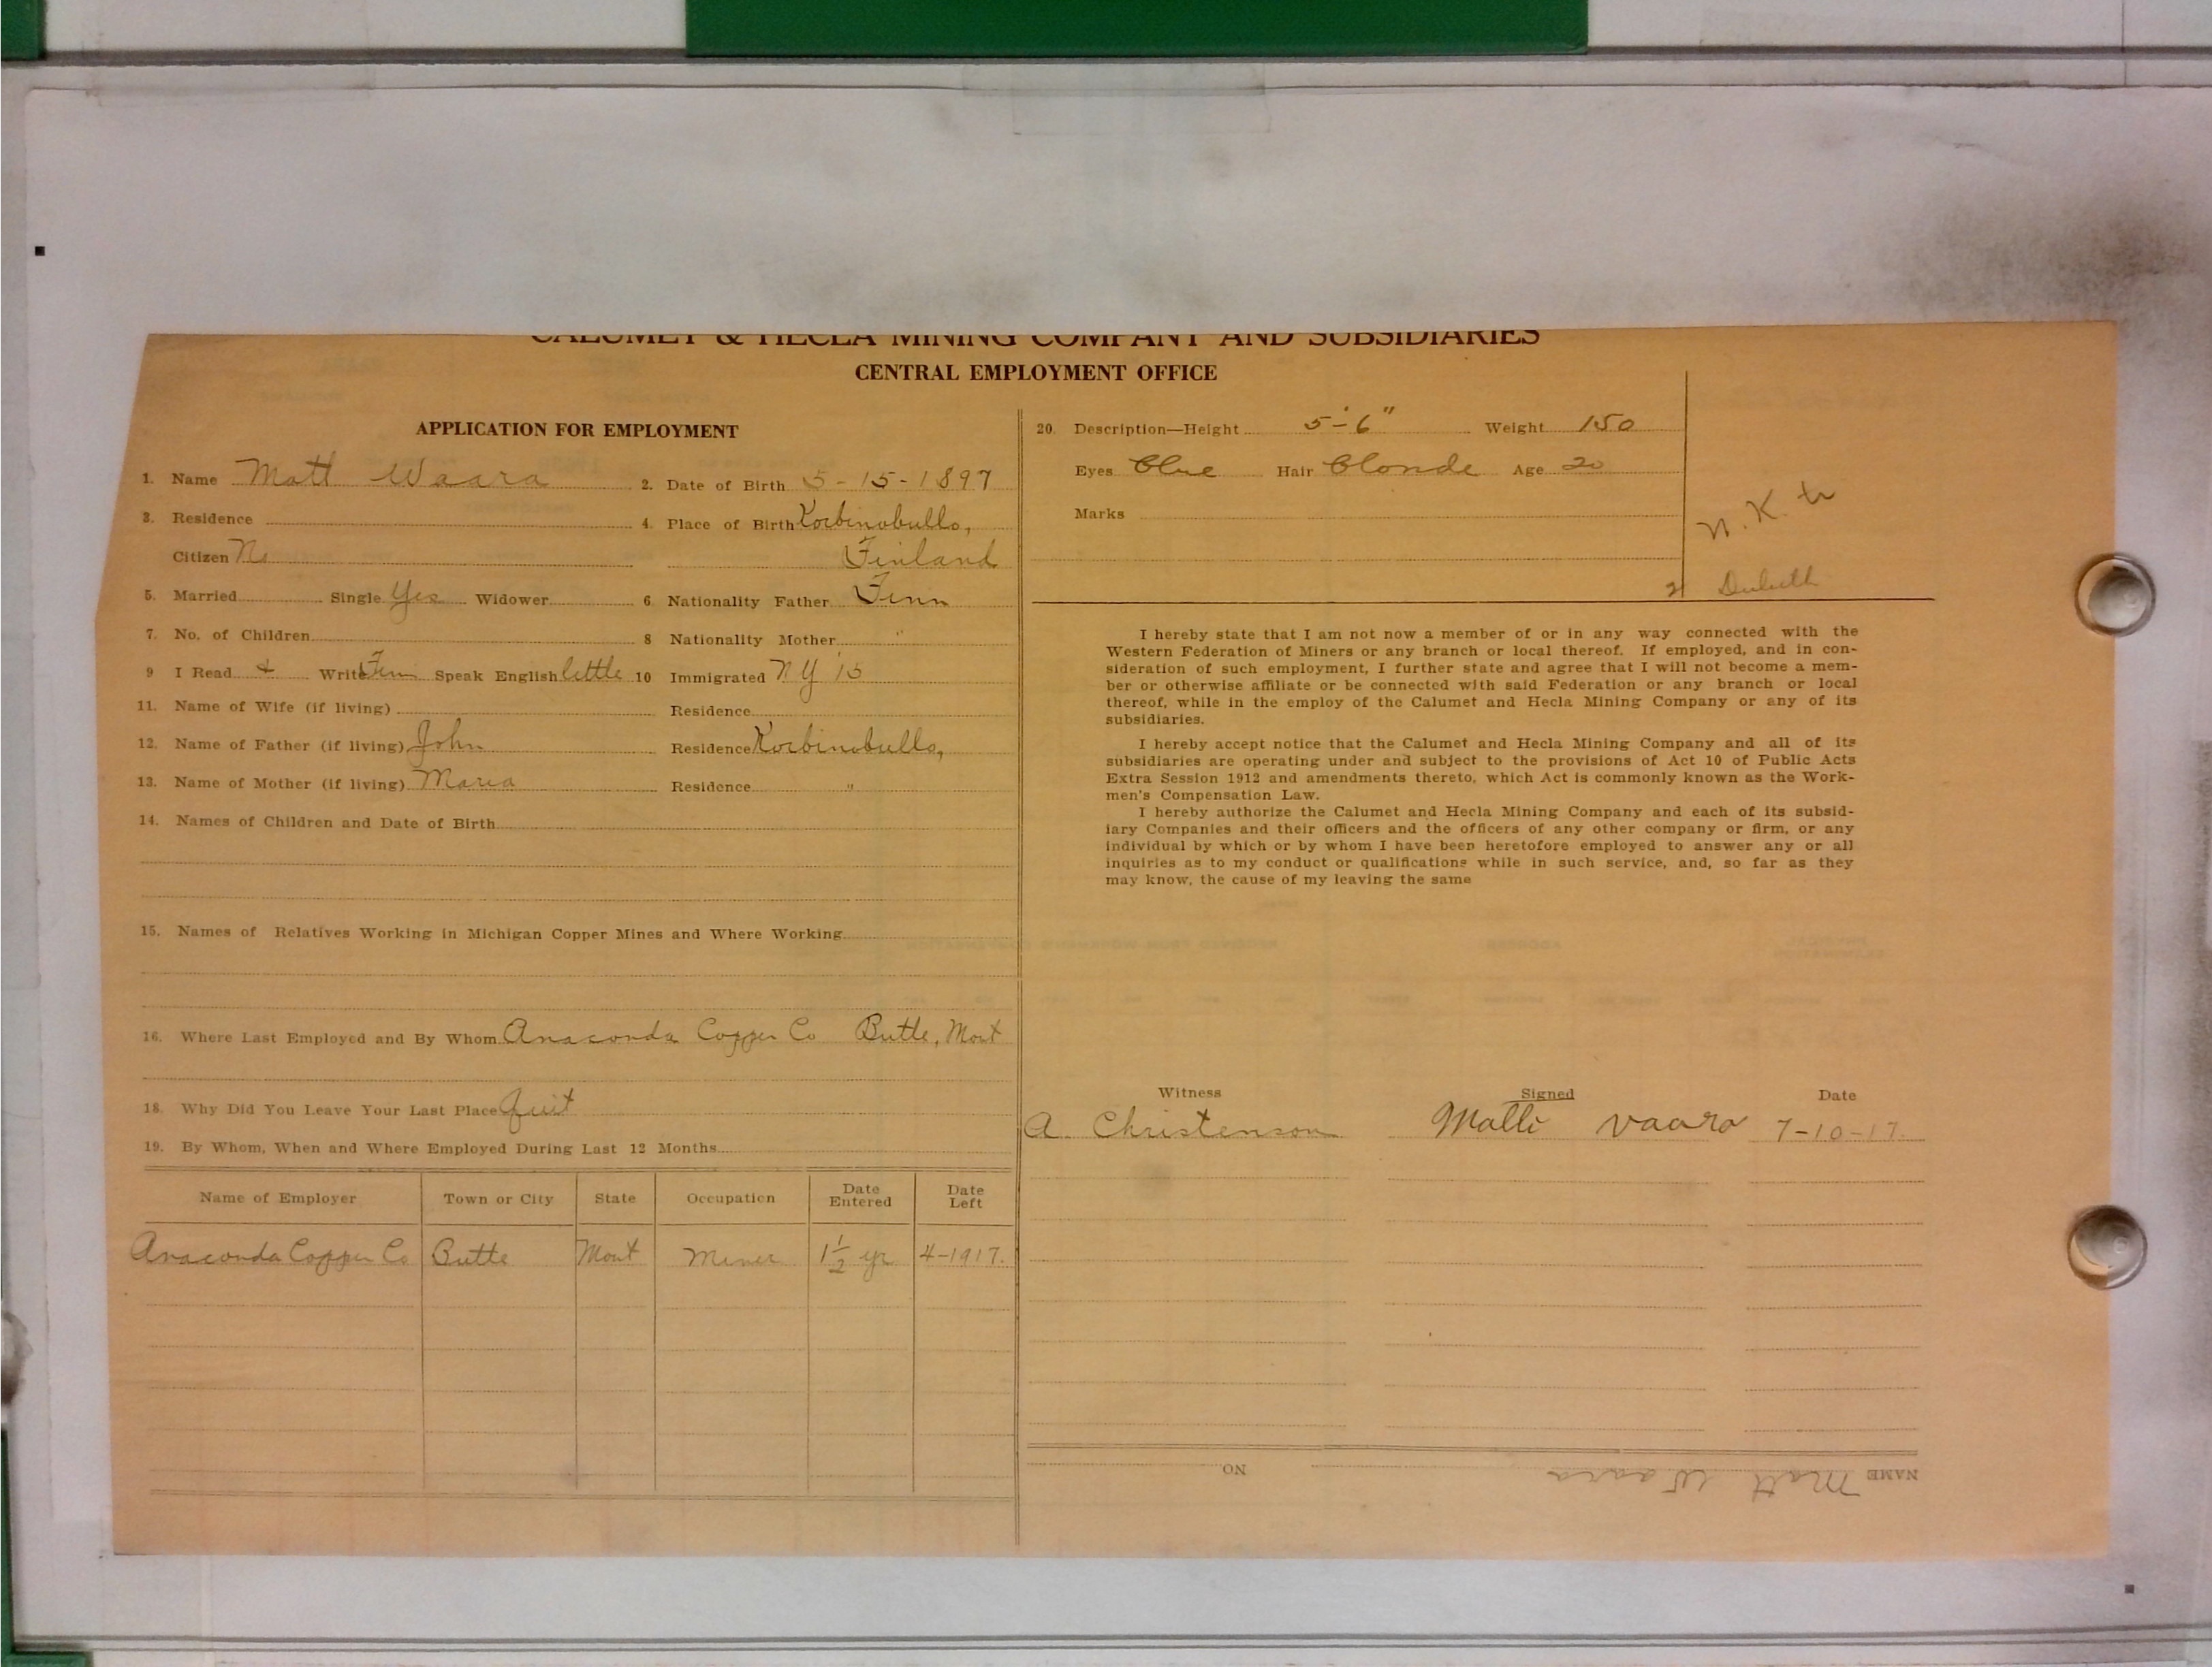 CALUMET & HECLA MINING COMPANY AND SUBSIDIARIES
CENTRAL EMPLOYMENT OFFICE
APPLICATION FOR EMPLOYMENT
1. Name Matt Waara 2. Date of Birth 5-15-1897
3. Residence 4. Place of Birth
Citizen No Finland
5. Married Single Yes Widower 6 Nationality Father Finn
7. No. of Children 8 Nationality Mother "
9 I Read & Write Finn Speak English little 10 Immigrated NY '15
11. Name of Wife (if living) Residence
12. Name of Father (if living) John Residence
13. Name of Mother (if living) Maria Residence "
14. Names of Children and Date of Birth
15. Names of Relatives Working in Michigan Copper Mines and Where Working
16. Where Last Employed and By Whom Anaconda Copper Co Butte, Mont
18. Why Did You Leave Your Last Place Quit
19. By Whom, When and Where Employed During Last 12 Months
Name of Employer Town or City State Occupation Date Entered Date Left
Anaconda Copper Co Butte Mont Miner 1 1/2 yr 4-1917.
20. Description—Height 5'-6" Weight 150
Eyes Blue Hair Blonde Age 20
Marks
Duluth
I hereby state that I am not now a member of or in any way connected with the
Western Federation of Miners or any branch or local thereof. If employed, and in con-
sideration of such employment, I further state and agree that I will not become a mem-
ber or otherwise affiliate or be connected with said Federation or any branch or local
thereof, while in the employ of the Calumet and Hecla Mining Company or any of its
subsidiaries.
I hereby accept notice that the Calumet and Hecla Mining Company and all of its
subsidiaries are operating under and subject to the provisions of Act 10 of Public Acts
Extra Session 1912 and amendments thereto, which Act is commonly known as the Work-
men's Compensation Law.
I hereby authorize the Calumet and Hecla Mining Company and each of its subsid-
iary Companies and their officers and the officers of any other company or firm, or any
individual by which or by whom I have been heretofore employed to answer any or all
inquiries as to my conduct or qualifications while in such service, and, so far as they
may know, the cause of my leaving the same
Witness Signed Date
A Christenson Matti Vaara 7-10-17.
NAME Matt Waara NO